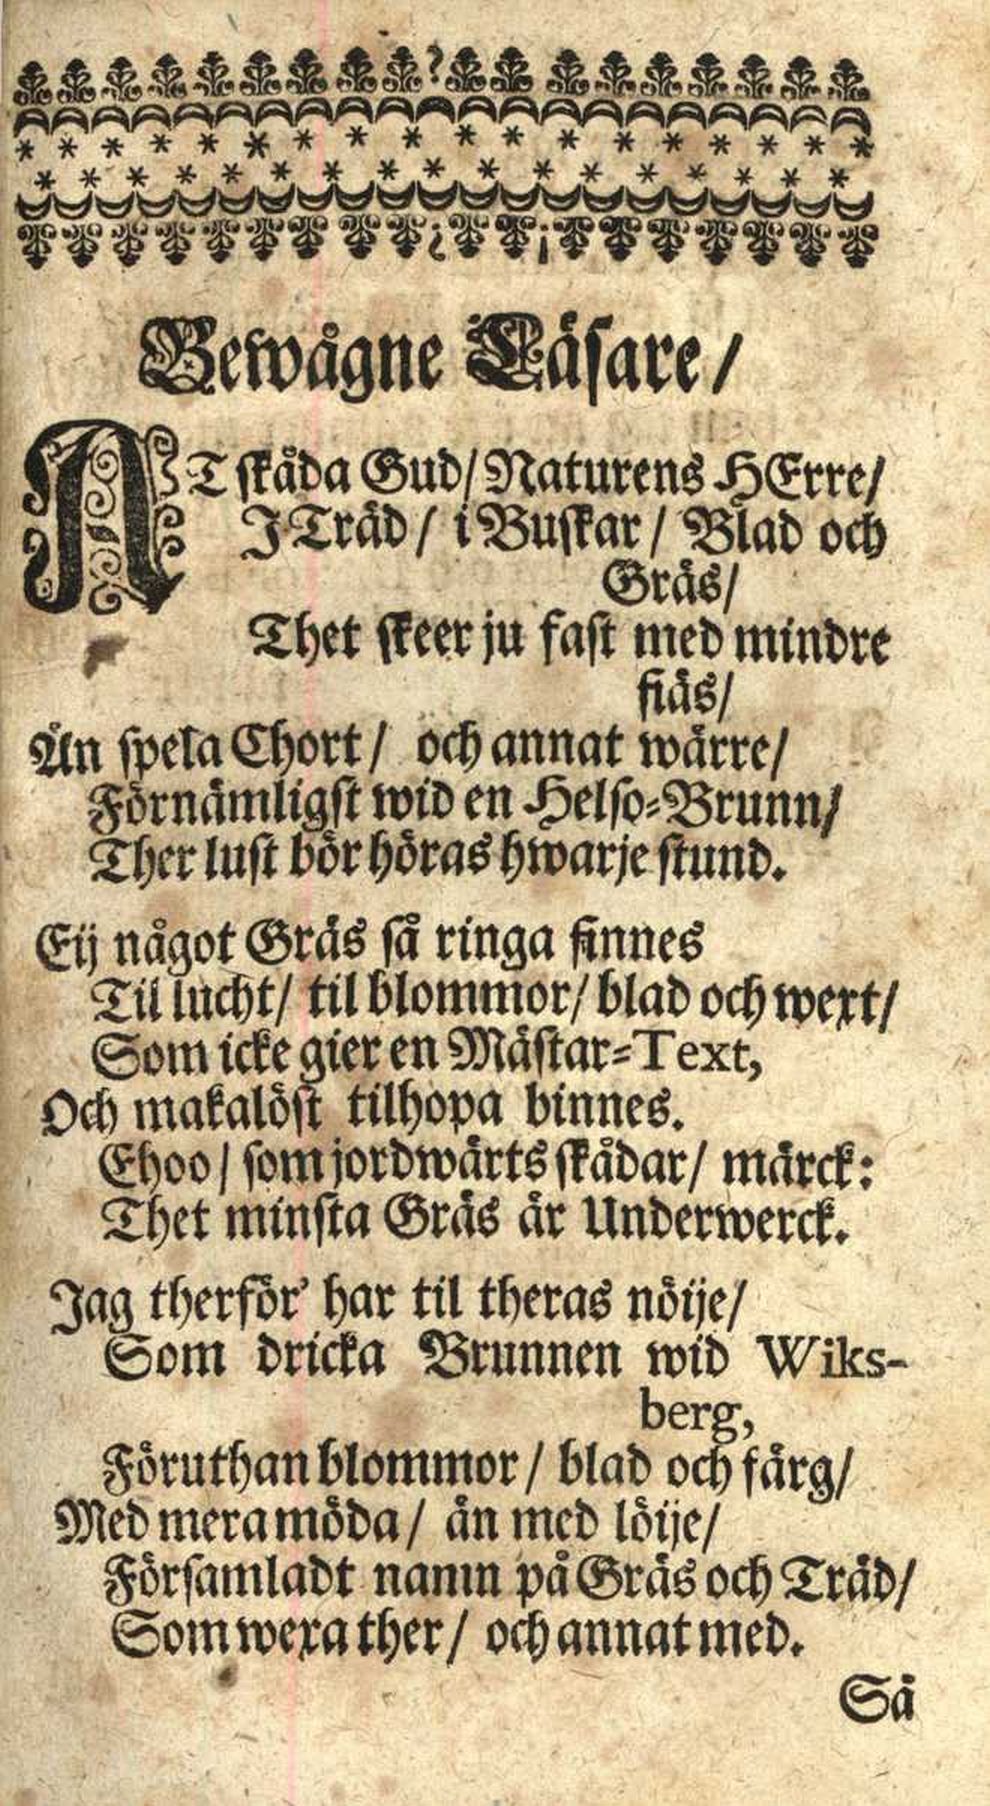 Bewågne Läsare/
AT skåda Gud/ Naturens HErre/
J Träd/ i Buskar/ Blad och
Gräs/
Thet skeer ju fast med mindre
fiäs/
Än spela Chort/ och annat wärre/
Förnämligst wid en Helso-Brunn/
Ther lust bör höras hwarje stund.
Eij något Gräs så ringa finnes
Til lucht/ til blommor/ blad och wext/
Som icke gier en Mästar-Text,
Och makalöst tilhopa binnes.
Ehoo/ som jordwärts skådar/ märck:
Thet minsta Gräs är Underwerck.
Jag therför' har til theras nöije/
Som dricka Brunnen wid Wiks-
berg,
Föruthan blommor/ blad och färg/
Med mera möda/ än med löije/
Församladt namn på Gräs och Träd/
Som wexa ther/ och annat med.
Så